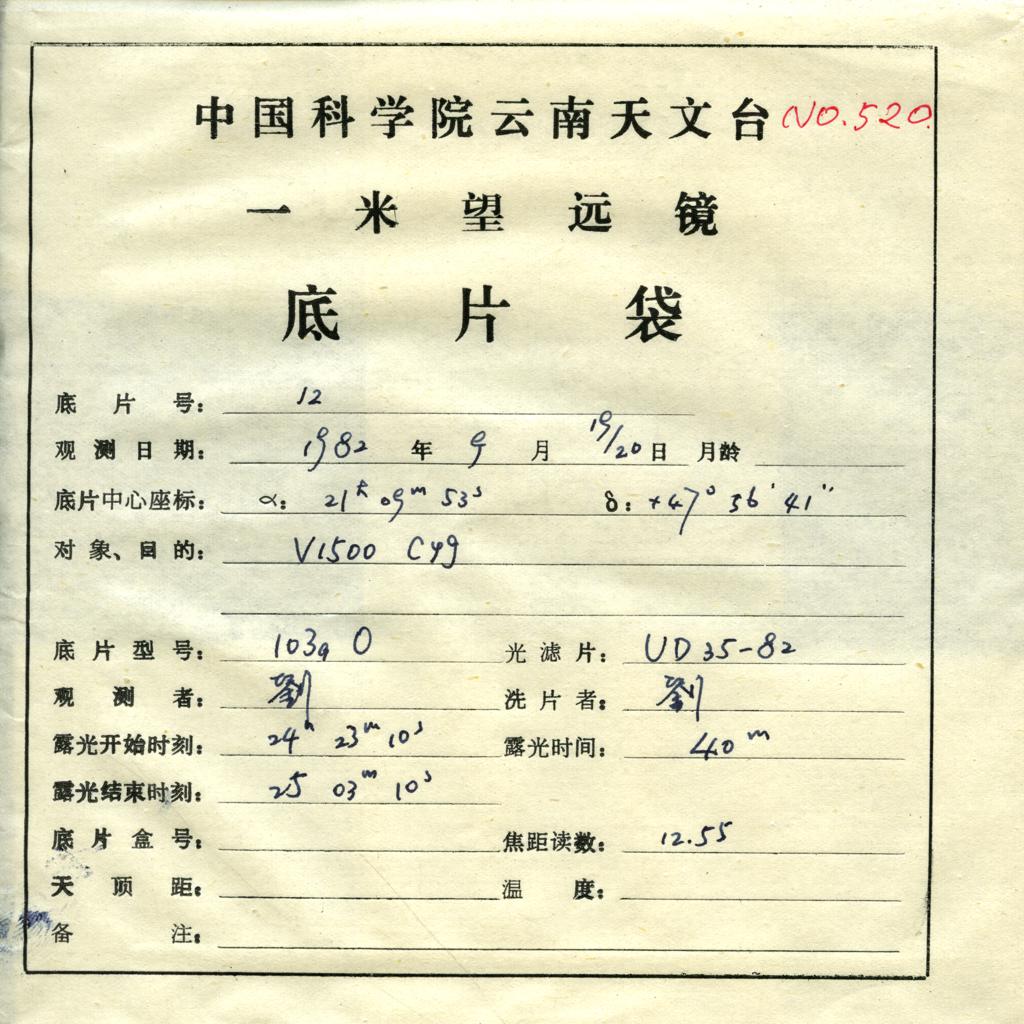 中国科学院云南天文台 NO.520
一米望远镜
底片袋
底片号： 12
观测日期： 1982 年 9 月 19/20 日 月龄
底片中心座标： α： 21h 09m 53s δ： +47° 56′ 41″
对象、目的： V1500 Cyg
底片型号： 103a O 光滤片： UD 35-82
观测者： 劉 洗片者： 劉
露光开始时刻： 24h 23m 10s 露光时间： 40m
露光结束时刻： 25 03m 10s
底片盒号： 焦距读数： 12.55
天顶距： 温度：
备注：